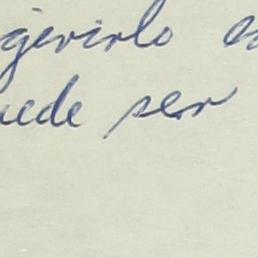 gerirlo e
uede ser